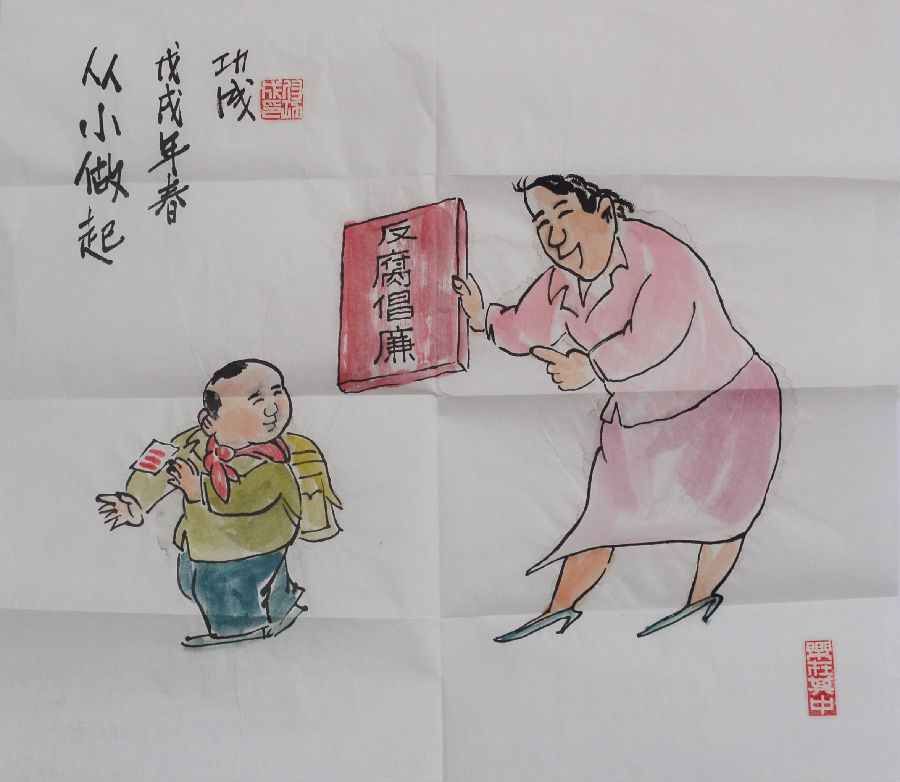 从小做起
戊戌年春
功成
反腐倡廉